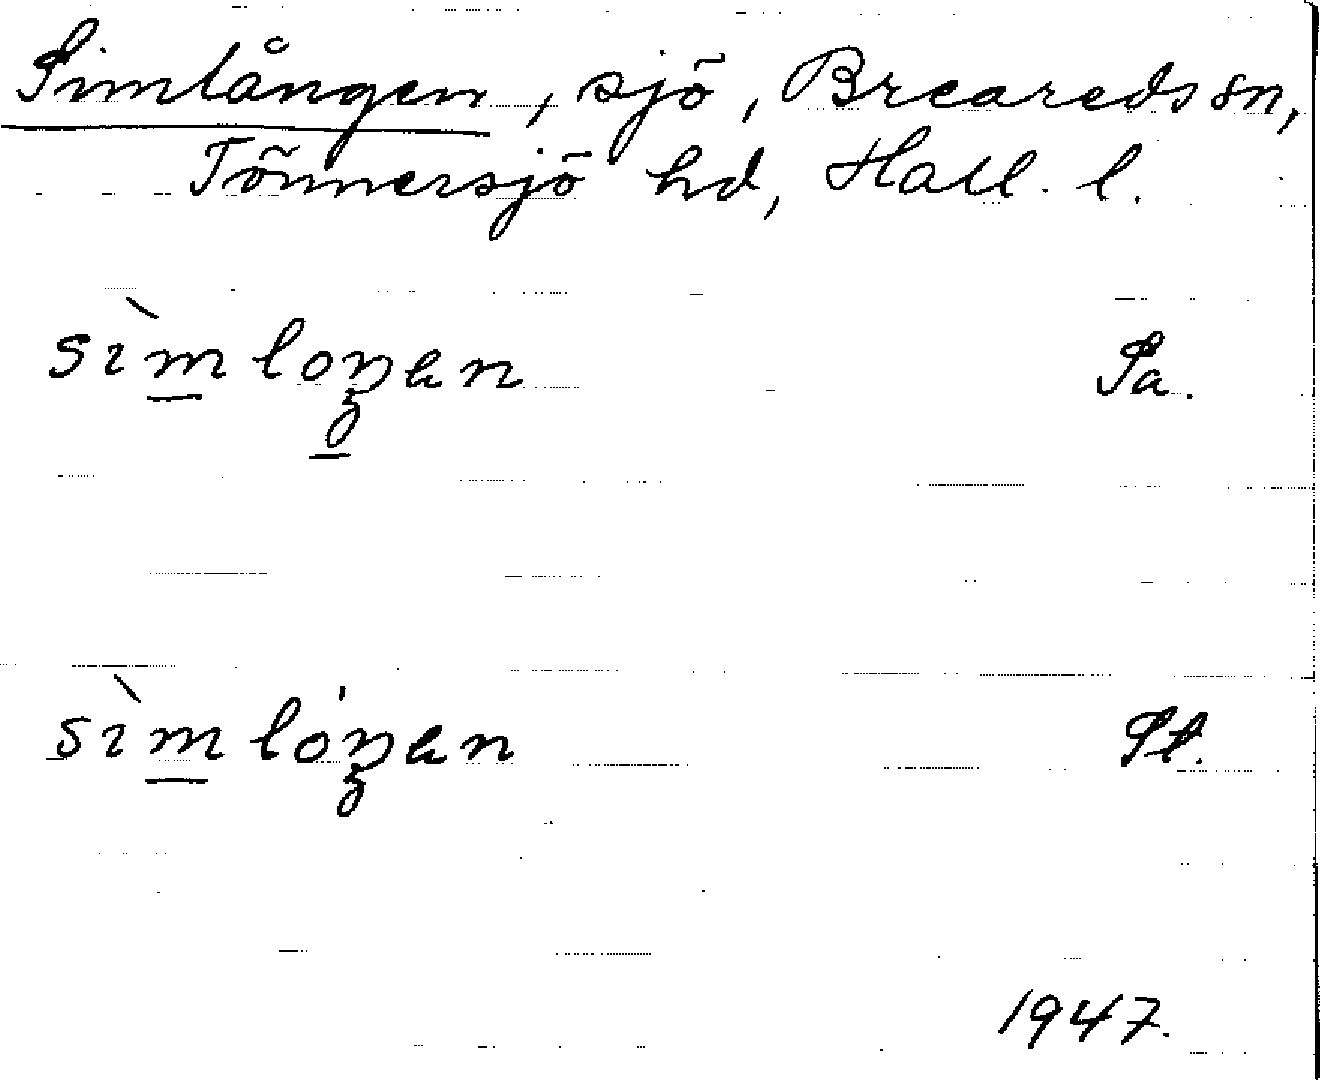 Simlången, sjö, Breareds sn,
Tönnersjö hd, Hall. l.
sìmloŋen Sa.
sìmlóŋen Sl.
1947.